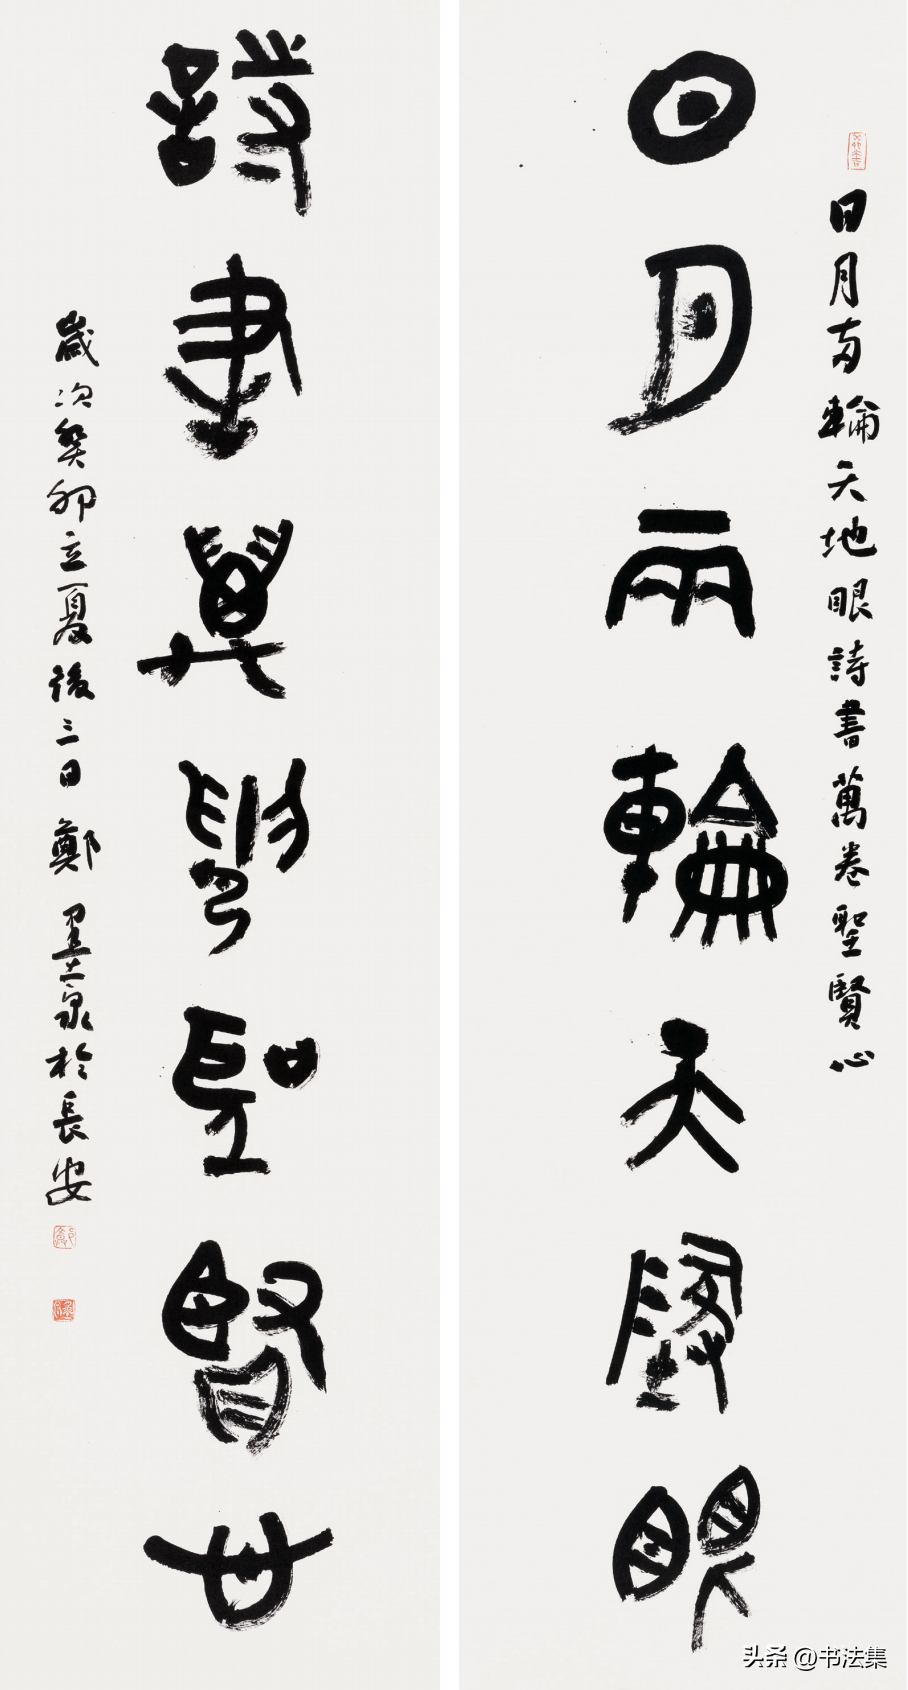 日月两輪天地眼詩書萬卷聖賢心
日月兩輪天地眼
詩書萬卷聖賢心
歲次癸卯立夏後三日鄭墨泉於長安
头条 @书法集